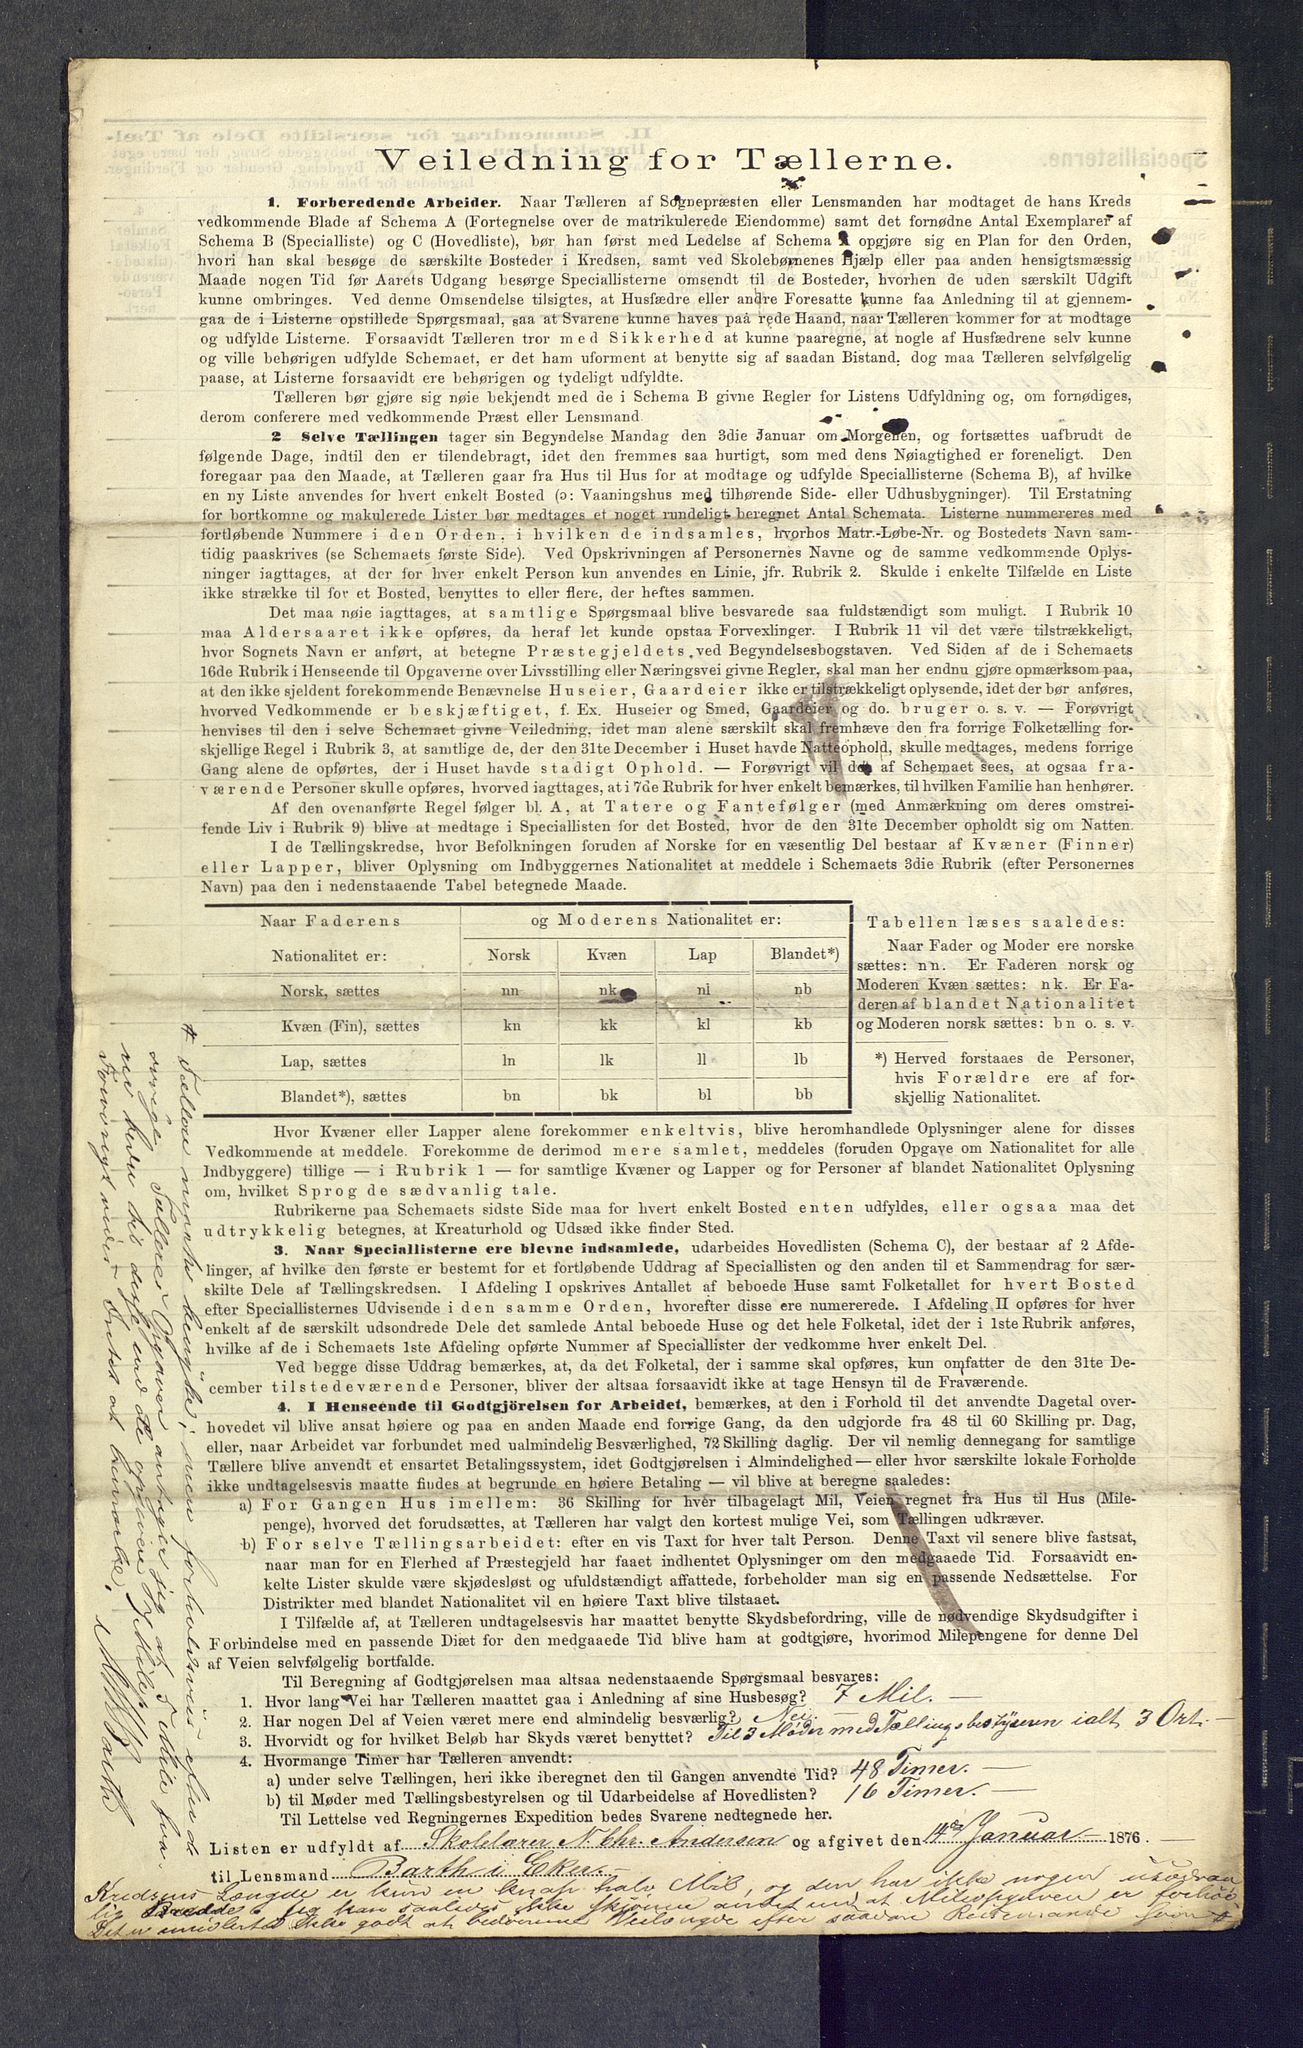 Veiledning for Tællerne.
1. Forberedende Arbeider. Naar Tælleren af Sognepræsten eller Lensmanden har modtaget de hans Kreds
vedkommende Blade af Schema A (Fortegnelse over de matrikulerede Eiendomme) samt det fornødne Antal Exemplarer af
Schema B (Specialliste) og C (Hovedliste), bør han først med Ledelse af Schema A opgjøre sig en Plan for den Orden,
hvori han skal besøge de særskilte Bosteder i Kredsen, samt ved Skolebørnenes Hjælp eller paa anden hensigtsmæssig
Maade nogen Tid før Aarets Udgang besørge Speciallisterne omsendt til de Bosteder, hvorhen de uden særskilt Udgift
kunne ombringes. Ved denne Omsendelse tilsigtes, at Husfædre eller andre Foresatte kunne faa Anledning til at gjennem-
gaa de i Listerne opstillede Spørgsmaal, saa at Svarene kunne haves paa rede Haand, naar Tælleren kommer for at modtage
og udfylde Listerne. Forsaavidt Tælleren tror med Sikkerhed at kunne paaregne, at nogle af Husfædrene selv kunne
og ville behørigen udfylde Schemaet, er det ham uforment at benytte sig af saadan Bistand, dog maa Tælleren selvfølgelig
paase, at Listerne forsaavidt ere behørigen og tydeligt udfyldte.
Tælleren bør gjøre sig nøie bekjendt med de i Schema B givne Regler for Listens Udfyldning og, om fornødiges,
derom conferere med vedkommende Præst eller Lensmand.
2 Selve Tællingen tager sin Begyndelse Mandag den 3die Januar om Morgenen, og fortsættes uafbrudt de
følgende Dage, indtil den er tilendebragt, idet den fremmes saa hurtigt, som med dens Nøiagtighed er foreneligt. Den
foregaar paa den Maade, at Tælleren gaar fra Hus til Hus for at modtage og udfylde Speciallisterne (Schema B), af hvilke
en ny Liste anvendes for hvert enkelt Bosted (ɔ: Vaaningshus med tilhørende Side- eller Udhusbygninger). Til Erstatning
for bortkomne og makulerede Lister bør medtages et noget rundeligt beregnet Antal Schemata. Listerne nummereres med
fortløbende Nummere i den Orden, i hvilken de indsamles, hvorhos Matr.-Løbe-Nr. og Bostedets Navn sam-
tidig paaskrives (se Schemaets første Side). Ved Opskrivningen af Personernes Navne og de samme vedkommende Oplys-
ninger iagttages, at der for hver enkelt Person kun anvendes en Linie, jfr. Rubrik 2. Skulde i enkelte Tilfælde en Liste
ikke strække til for et Bosted, benyttes to eller flere, der heftes sammen.
Det maa nøie iagttages, at samtlige Spørgsmaal blive besvarede saa fuldstændigt som muligt. I Rubrik 10
maa Aldersaaret ikke opføres, da heraf let kunde opstaa Forvexlinger. I Rubrik 11 vil det være tilstrækkeligt,
hvor Sognets Navn er anført, at betegne Præstegjeldets ved Begyndelsesbogstaven. Ved Siden af de i Schemaets
16de Rubrik i Henseende til Opgaverne over Livsstilling eller Næringsvei givne Regler, skal man her endnu gjøre opmærksom paa,
at den ikke sjeldent forekommende Benævnelse Huseier, Gaardeier ikke er tilstrækkeligt oplysende, idet der bør anføres,
hvorved Vedkommende er beskjæftiget, f. Ex. Huseier og Smed, Gaardeier og do. bruger o. s. v. — Forøvrigt
henvises til den i selve Schemaet givne Veiledning, idet man alene særskilt skal fremhæve den fra forrige Folketælling for-
skjellige Regel i Rubrik 3, at samtlige de, der den 31te December i Huset havde Natteophold, skulle medtages, medens forrige
Gang alene de opførtes, der i Huset havde stadigt Ophold. — Forøvrigt vil det af Schemaet sees, at ogsaa fra-
værende Personer skulle opføres, hvorved iagttages, at i 7de Rubrik for hver enkelt bemærkes, til hvilken Familie han henhører.
Af den ovenanførte Regel følger bl. A, at Tatere og Fantefølger (med Anmærkning om deres omstrei-
fende Liv i Rubrik 9) blive at medtage i Speciallisten for det Bosted, hvor de den 31te December opholdt sig om Natten.
I de Tællingskredse, hvor Befolkningen foruden af Norske for en væsentlig Del bestaar af Kvæner (Finner)
eller Lapper, bliver Oplysning om Indbyggernes Nationalitet at meddele i Schemaets 3die Rubrik (efter Personernes
Navn) paa den i nedenstaaende Tabel betegnede Maade.
Naar Faderens og Moderens Nationalitet er:
Nationalitet er: Norsk Kvæn Lap Blandet*)
Norsk, sættes nn nk ni nb
Kvæn (Fin), sættes kn kk kl kb
Lap, sættes ln lk ll lb
Blandet*), sættes bn bk bl bb
Tabellen læses saaledes:
Naar Fader og Moder ere norske
sættes: nn. Er Faderen norsk og
Moderen Kvæn sættes: nk. Er Fa-
deren af blandet Nationalitet
og Moderen norsk sættes: bn o. s. v.
*) Herved forstaaes de Personer,
hvis Forældre ere af for-
skjellig Nationalitet.
Hvor Kvæner eller Lapper alene forekommer enkeltvis, blive heromhandlede Oplysninger alene for disses
Vedkommende at meddele. Forekomme de derimod mere samlet, meddeles (foruden Opgave om Nationalitet for alle
Indbyggere) tillige — i Rubrik 1 — for samtlige Kvæner og Lapper og for Personer af blandet Nationalitet Oplysning
om, hvilket Sprog de sædvanlig tale.
Rubrikerne paa Schemaets sidste Side maa for hvert enkelt Bosted enten udfyldes, eller ogsaa maa det
udtrykkelig betegnes, at Kreaturhold og Udsæd ikke finder Sted.
3. Naar Speciallisterne ere blevne indsamlede, udarbeides Hovedlisten (Schema C), der bestaar af 2 Afde-
linger, af hvilke den første er bestemt for et fortløbende Uddrag af Speciallisten og den anden til et Sammendrag for sær-
skilte Dele af Tællingskredsen. I Afdeling I opskrives Antallet af beboede Huse samt Folketallet for hvert Bosted
efter Speciallisternes Udvisende i den samme Orden, hvorefter disse ere numererede. I Afdeling II opføres for hver
enkelt af de særskilt udsondrede Dele det samlede Antal beboede Huse og det hele Folketal, idet der i 1ste Rubrik anføres,
hvilke af de i Schemaets 1ste Afdeling opførte Nummer af Speciallister der vedkomme hver enkelt Del.
Ved begge disse Uddrag bemærkes, at, da det Folketal, der i samme skal opføres, kun omfatter de den 31te De-
cember tilstedeværende Personer, bliver der altsaa forsaavidt ikke at tage Hensyn til de Fraværende.
4. I Henseende til Godtgjörelsen for Arbeidet, bemærkes, at den i Forhold til det anvendte Dagetal over-
hovedet vil blive ansat høiere og paa en anden Maade end forrige Gang, da den udgjorde fra 48 til 60 Skilling pr. Dag,
eller, naar Arbeidet var forbundet med ualmindelig Besværlighed, 72 Skilling daglig. Der vil nemlig dennegang for samtlige
Tællere blive anvendt et ensartet Betalingssystem, idet Godtgjørelsen i Almindelighed — eller hvor særskilte lokale Forholde
ikke undtagelsesvis maatte findes at begrunde en høiere Betaling — vil blive at beregne saaledes:
a) For Gangen Hus imellem: 36 Skilling for hver tilbagelagt Mil, Veien regnet fra Hus til Hus (Mile-
penge), hvorved det forudsættes, at Tælleren har valgt den kortest mulige Vei, som Tællingen udkræver.
b) For selve Tællingsarbeidet: efter en vis Taxt for hver talt Person. Denne Taxt vil senere blive fastsat,
naar man for en Flerhed af Præstegjeld har faaet indhentet Oplysninger om den medgaaede Tid. Forsaavidt en-
kelte Lister skulde være skjødesløst og ufuldstændigt affattede, forbeholder man sig en passende Nedsættelse. For
Distrikter med blandet Nationalitet vil en høiere Taxt blive tilstaaet.
I Tilfælde af, at Tælleren undtagelsesvis har maattet benytte Skydsbefordring, ville de nødvendige Skydsudgifter i
Forbindelse med en passende Diæt for den medgaaede Tid blive ham at godtgjøre, hvorimod Milepengene for denne Del
af Veien selvfølgelig bortfalde.
Til Beregning af Godtgjørelsen maa altsaa nedenstaaende Spørgsmaal besvares:
1. Hvor lang Vei har Tælleren maattet gaa i Anledning af sine Husbesøg? 7 Mil. —
2. Har nogen Del af Veien været mere end almindelig besværlig? Nei. —
3. Hvorvidt og for hvilket Beløb har Skyds været benyttet? Til 3 Møder med Tællingsbestyreren ialt 3 Ort. —
4. Hvormange Timer har Tælleren anvendt:
a) under selve Tællingen, heri ikke iberegnet den til Gangen anvendte Tid? 48 Timer. —
b) til Møder med Tællingsbestyrelsen og til Udarbeidelse af Hovedlisten? 16 Timer. —
Til Lettelse ved Regningernes Expedition bedes Svarene nedtegnede her.
Listen er udfyldt af Skolelærer N. Chr. Andersen og afgivet den 14de Januar 1876.
til Lensmand Barth i Eker. —
Kredsens Længde er kun en knap halv Mil, og den har ikke nogen usædvan
lig Bredde. Jeg kan saaledes ikke skjønne andet end at Mileopgaven er forhøi
Det er imidlertid ikke godt at bedømme Veilængde efter saadan
* Tællere maatte
øvrige Tællere's Opgaver
Forøvrigt at bemærke.
Barth